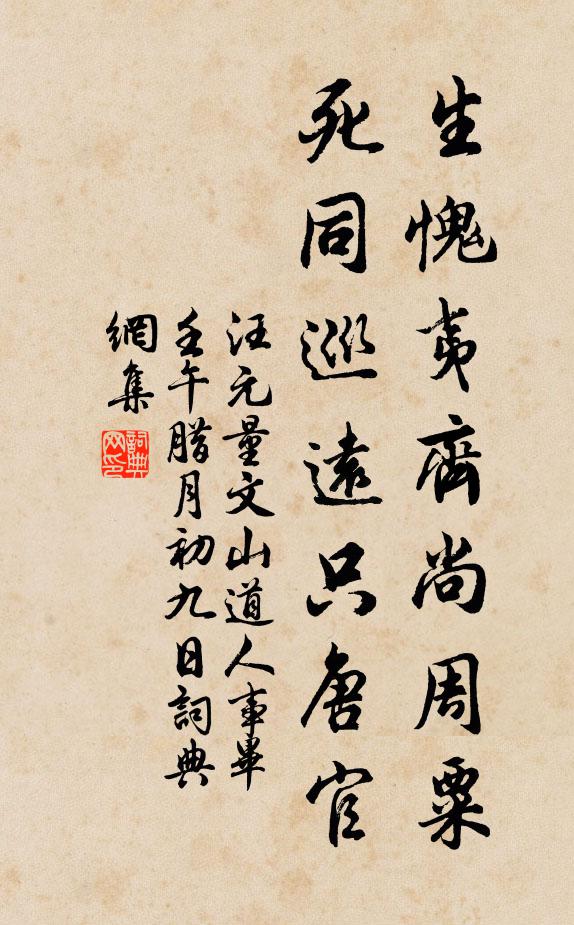 生愧夷齊尚周粟
死同巡遠只唐官
汪元量文山道人事畢
壬午腊月初九日詞典
網集
詞典网印